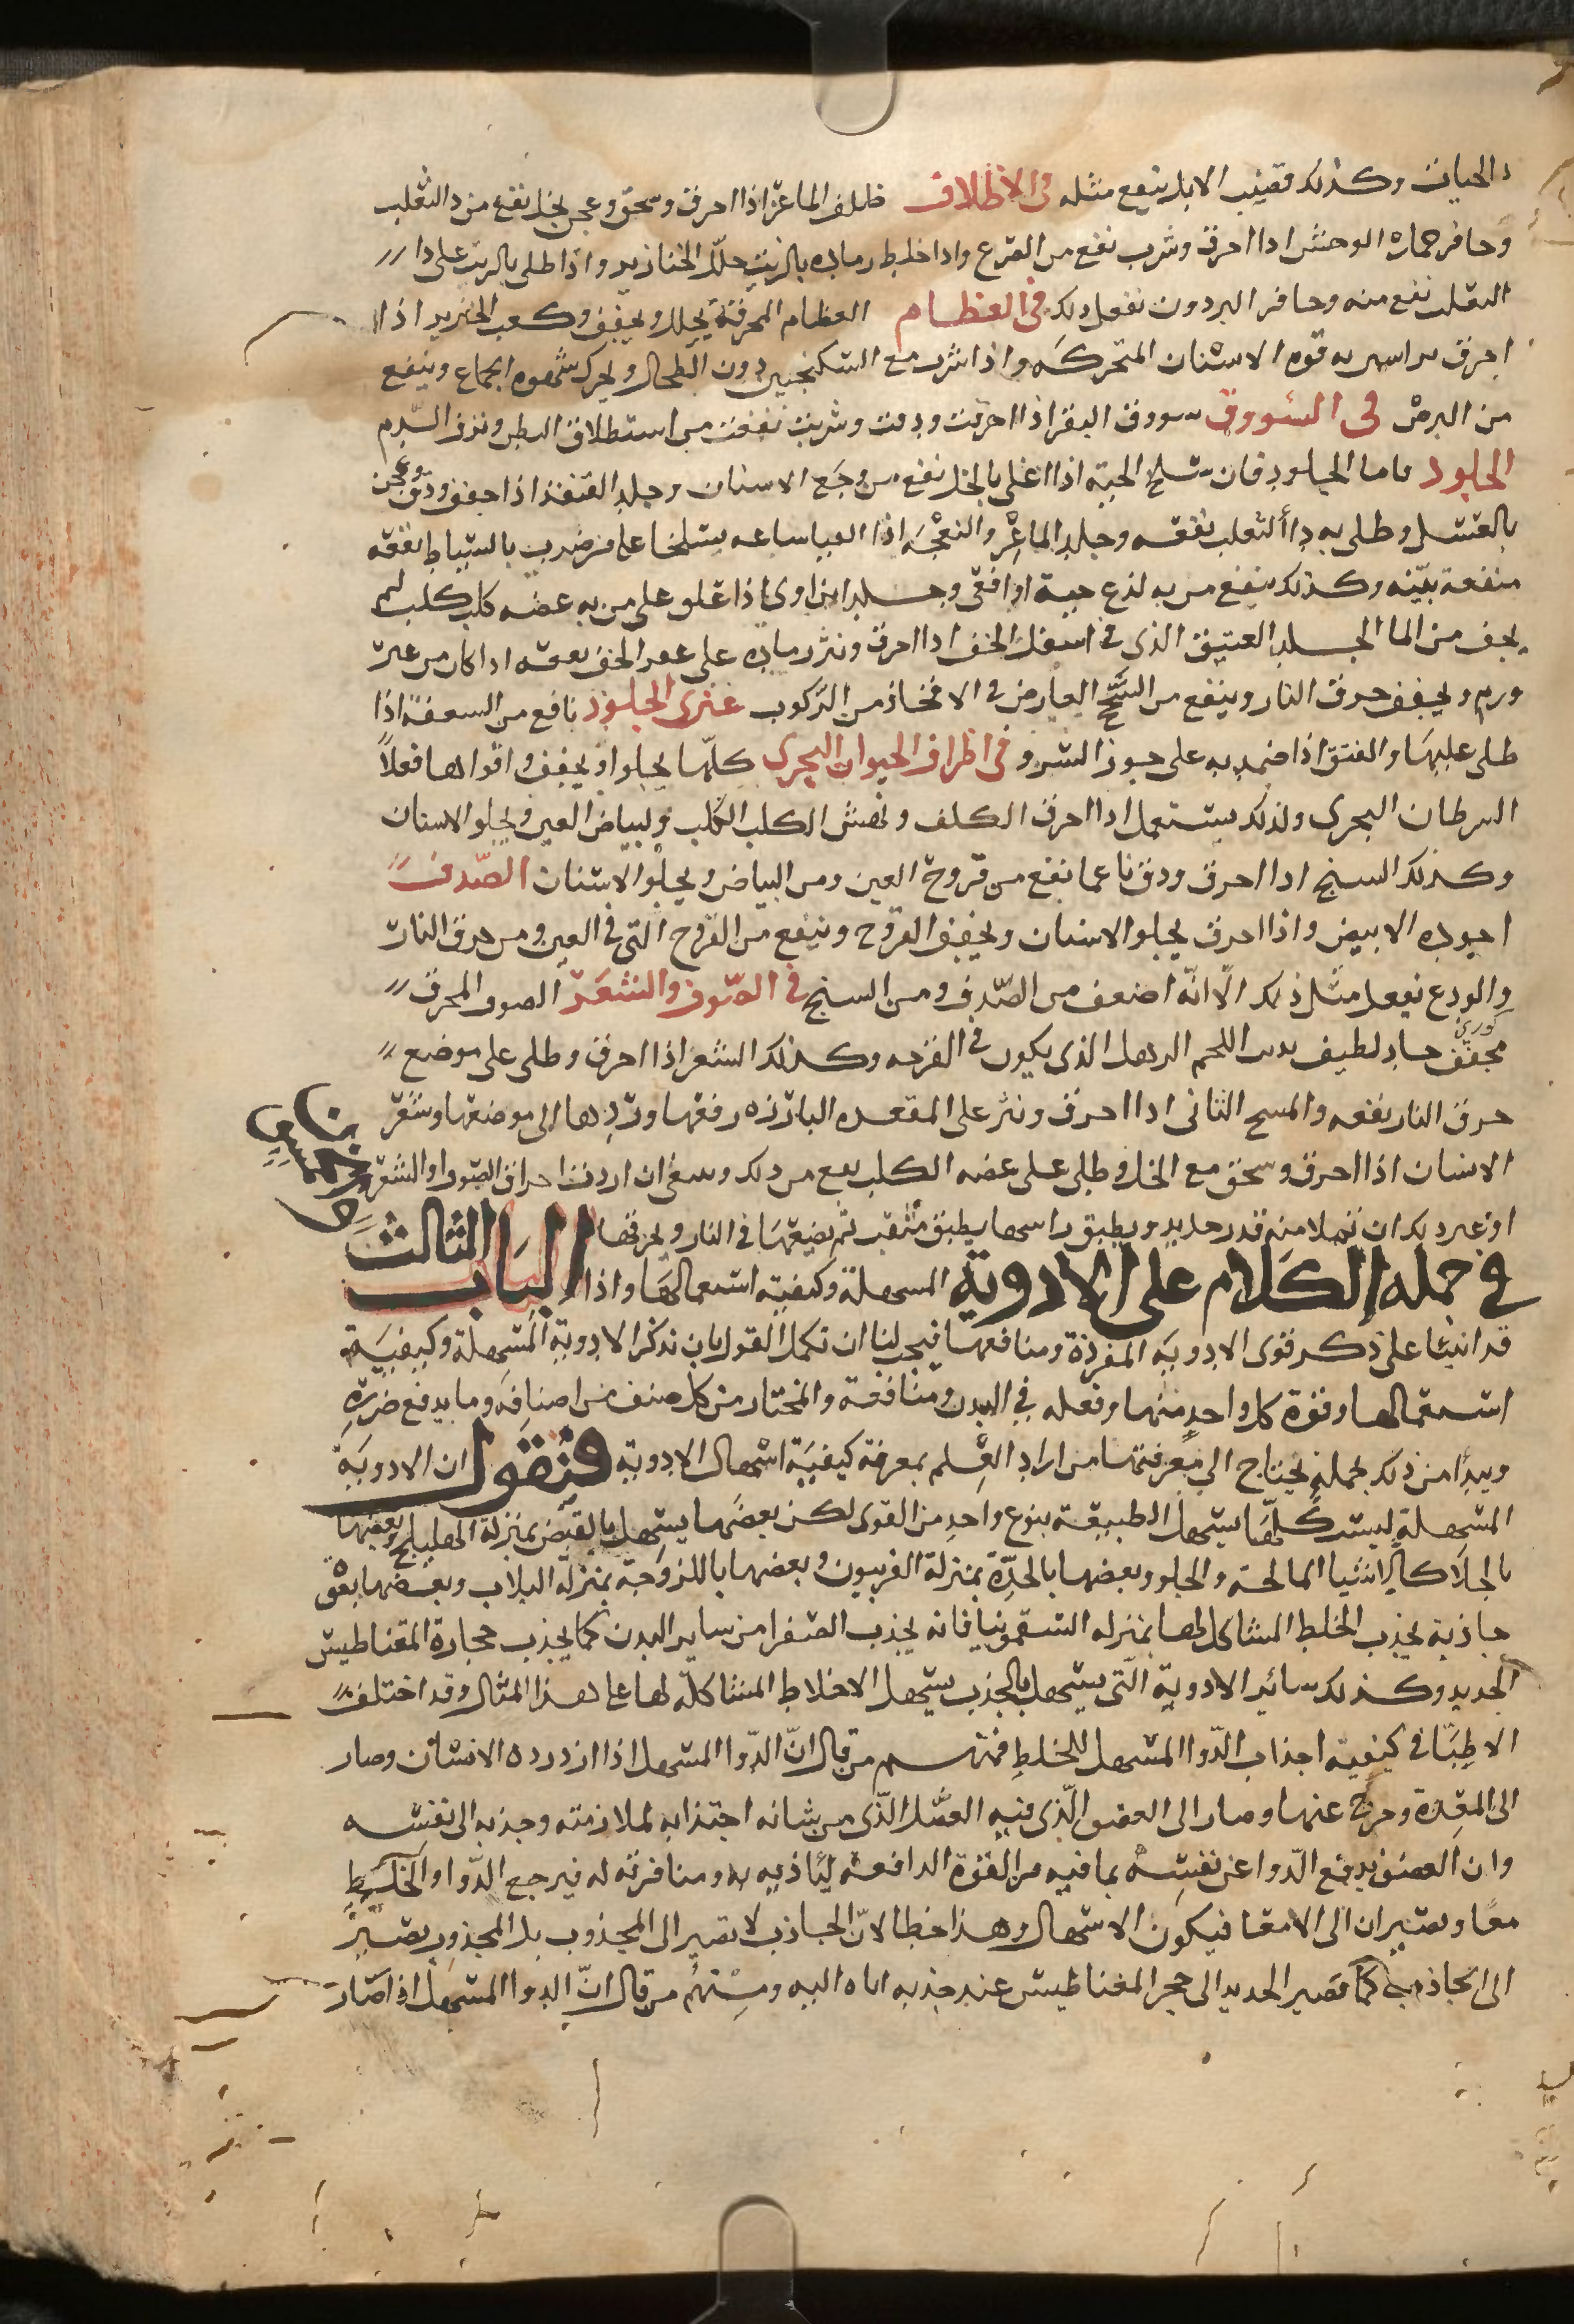 الحيات وكذلك قضيب الايل ينفع مثله في الاظلاف ظلف الماعز اذا احرق وسحق وعجن بخل نفع من دا الثعلب
وحافر حماره الوحش اذا احرق وشرب نفع من الصرع واذا خلط رماده بالزيت حلل الخنازير واذا طلى بالزيت على دا
الثعلب نفع منه وحافر البردون يفعل ذلك في العظام العظام المحرقة يحلل ويجفف وكعب الخنزير اذا
احرق به قوه الاسنان المتحركه واذا شرب مع السكنجبين دون الطحال ويحرك شهوه الجماع وينفع
من البرص في السووق سووق البقر اذا احرقت ودقت وشربت نفعت من استطلاق البطن ونزف الدم
الجلود فاما الجلود فان سلخ الحية اذا اغلى بالخل نفع من وجع الاسنان وجلد القنفذ اذا جفف ودق وعجن
بالعسل وطلى به دا الثعلب نفعه وجلد الماعز والنعجه اذا القيا ساعه يسلخا على من ضرب بالسياط نفعه
منفعة بينه وكذلك ينفع من به لذع حية او افعى وجلد ابن اوى اذا علق على من به عضه كلب كلب لم
يخف من الما الجلد العتيق الذى في اسفل الخف اذا احرق ونثر رماده على عقر الخف نفعه اذا كان من غير
ورم ويجفف حرق النار وينفع من السحج العارض في الافخاذ من الركوب غرى الجلود نافع من السعفة اذا
طلى عليها والفتق اذا ضمد به على جوز السرو في اظراف الحيوان البحرى كلها يجلوا ويجفف واقواها فعلاً
السرطان البحرى ولذلك يستعمل اذا احرق الكلف ونهش الكلب الكلب ولبياض العين ويجلو الاسنان
وكذلك السنج اذا احرق ودق ناعما نفع من قروح العين ومن البياض ويجلو الاسنان الصدف
اجوده الابيض واذا احرق يجلو الاسنان ويجفف القروح وينفع من القروح التى في العين ومن حرق النار
والودع يفعل مثل ذلك الا انه اضعف من الصدف ومن السنج في الصوف والشعر الصوف المحرق
مجفف حاد لطيف اللحم الرهل الذى يكون في القرحه وكذلك الشعر اذا احرق وطلى على موضع
حرق النار نفعه والمسح الثانى اذا احرق ونثر على المقعده البارزه رفعها وردها الى موضعها وشعر
الانسان اذا احرق وسحق مع الخل وطلى على عضه الكلب نفع من ذلك وينبغى ان اردت احراق الصوف او الشعر
او غير ذلك ان تملا منه قدر حديد ويطبق راسها بطبق مثقب ثم يضعها في النار ويحرقها الباب الثالث
في جمله الكلام على الادوية المسهلة وكيفية استعمالها واذا
قد اتينا على ذكر قوى الادوية المفردة ومنافعها فيجب لنا ان نكمل القول بان نذكر الادوية المسهلة وكيفية
استعمالها وقوة كل واحد منها وفعله في البدن ومنافعه والمختار من كل صنف من اصنافه وما يدفع ضرره
ويبدا من ذلك بجمله يحتاج الى معرفتها من اراد العلم بمعرفة كيفية اسهال الادوية فنقول ان الادوية
المسهلة ليست كلها يسهل الطبيعة بنوع واحد من القوى لكن بعضها يسهل بالقبض بمنزلة الهليلج وبعضها
بالجلا كالاشيا المالحة والحلو وبعضها بالحدة بمنزلة الفربيون وبعضها باللزوجة بمنزلة البلاب وبعضها بقوة
جاذبة يجذب الخلط المشاكل لها بمنزله السقمونيا فانه يجذب الصفرا من ساير البدن كما يجذب حجارة المقناطيس
الحديد وكذلك سائر الادوية التى يسهل بالجذب يسهل الاخلاط المشاكلة لها على هذا المثال وقد اختلف
الاطبا في كيفية اجذاب الدوا المسهل للخلط فمنهم من قال ان الدوا المسهل اذا ازدرده الانسان وصار
الى المعدة وخرج عنها وصار الى العضو الذى فيه الفضل الذى من شانه اجتذابه لملازمته وجذبه الى نفسه
وان العضو يدفع الدوا عن نفسه بما فيه من القوة الدافعة لتاذيه به ومنافرته له فيرجع الدوا والخلط
معا ويصيران الى الامعا فيكون الاسهال وهذا خطا لان الجاذب لا يصير الى المجذوب بل المجذوب يصير
الى الجاذب كما يصير الحديد الى حجر المغناطيس عند جذبه اياه اليه ومنهم من قال ان الدوا المسهل اذا صار